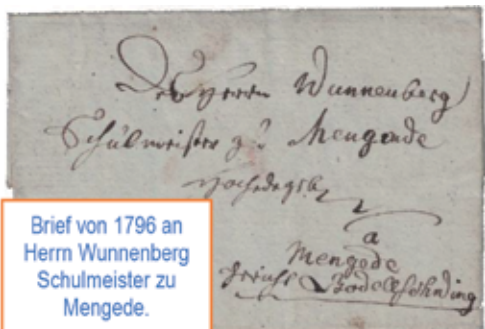 Herrn Wunnenberg
Schulmeister zu Mengende
a
Mengede
Bodellschwing
Brief von 1796 an
Herrn Wunnenberg
Schulmeister zu
Mengede.